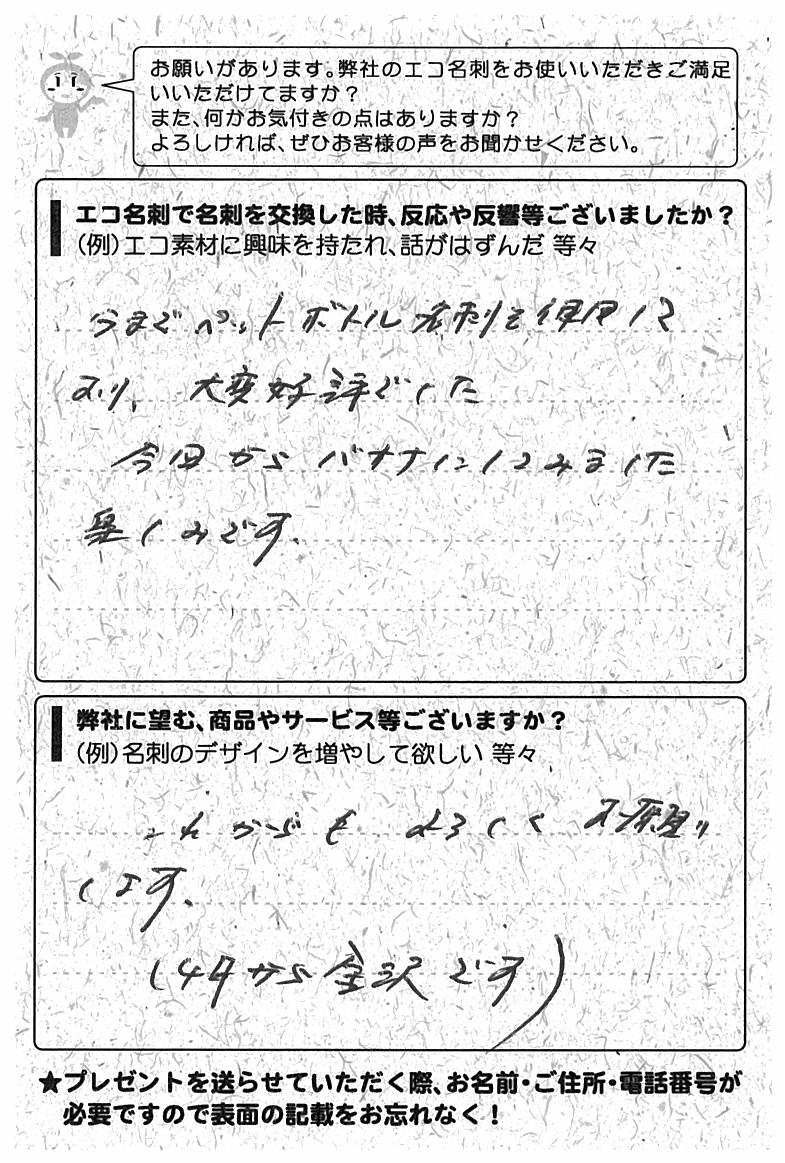 お願いがあります。弊社のエコ名刺をお使いいただきご満足
いいただけてますか？
また、何かお気付きの点はありますか？
よろしければ、ぜひお客様の声をお聞かせください。
エコ名刺で名刺を交換した時、反応や反響等ございましたか？
（例）エコ素材に興味を持たれ、話がはずんだ 等々
今までペットボトル名刺を使用して
おり、大変好評でした
今回からバナナにしてみました
楽しみです。
弊社に望む、商品やサービス等ございますか？
（例）名刺のデザインを増やして欲しい 等々
これからも よろしく お願い
します。
（4月から金沢です）
★プレゼントを送らせていただく際、お名前・ご住所・電話番号が
必要ですので表面の記載をお忘れなく！